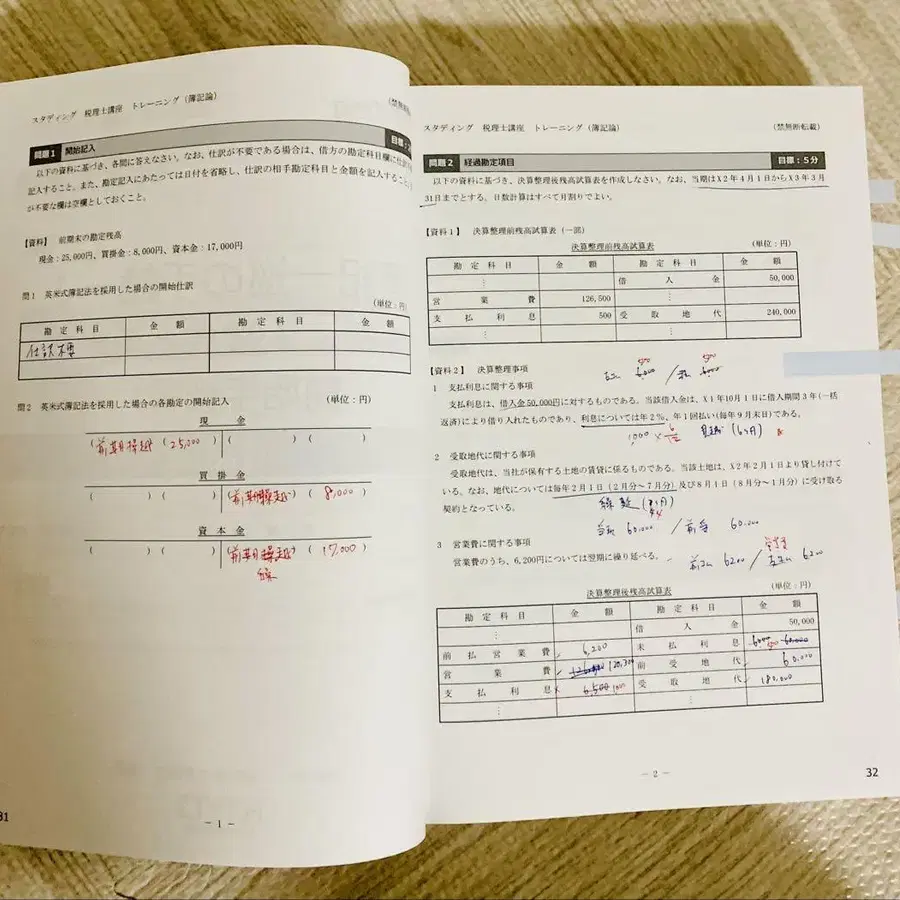 スタディング 税理士講座 トレーニング（簿記論）
（禁無断転載）
問題1 開始記入
目標：
以下の資料に基づき、各問に答えなさい。なお、仕訳が不要である場合は、借方の勘定科目欄に仕訳
記入すること。また、勘定記入にあたっては日付を省略し、仕訳の相手勘定科目と金額を記入すること
が不要な欄は空欄としておくこと。
【資料】 前期末の勘定残高
現金：25,000円、買掛金：8,000円、資本金：17,000円
問1 英米式簿記法を採用した場合の開始仕訳
（単位：円）
勘定科目 金額 勘定科目 金額
仕訳不要
問2 英米式簿記法を採用した場合の各勘定の開始記入
（単位：円）
現金
（前期繰越）（25,000）（ ）（ ）
買掛金
（ ）（ ）（前期繰越）（8,000）
資本金
（ ）（ ）（前期繰越）（17,000）
繰
－1－
31
スタディング 税理士講座 トレーニング（簿記論）
（禁無断転載）
問題2 経過勘定項目
目標：5分
以下の資料に基づき、決算整理後残高試算表を作成しなさい。なお、当期はX2年4月1日からX3年3月
31日までとする。日数計算はすべて月割りでよい。
【資料1】 決算整理前残高試算表（一部）
決算整理前残高試算表
（単位：円）
勘定科目 金額 勘定科目 金額
⋮ 借入金 50,000
営業費 126,500 ⋮
支払利息 500 受取地代 240,000
⋮ ⋮
【資料2】 決算整理事項
500 500
6,000 / 6,000
1 支払利息に関する事項
支払利息は、借入金50,000円に対するものである。当該借入金は、X1年10月1日に借入期間3年（一括
返済）により借り入れたものであり、利息については年2％、年1回払い（毎年9月末日）である。
1,000 × 6/12 見越（6ヶ月）
2 受取地代に関する事項
受取地代は、当社が保有する土地の賃貸に係るものである。当該土地は、X2年2月1日より貸し付けて
いる。なお、地代については毎年2月1日（2月分～7月分）及び8月1日（8月分～1月分）に受け取る
契約となっている。
繰延
4
60,000 / 前受 60,000
3 営業費に関する事項
営業費のうち、6,200円については翌期に繰り延べる。
6200 / 6200
決算整理後残高試算表
（単位：円）
勘定科目 金額 勘定科目 金額
⋮ 借入金 50,000
前払営業費 6,200 未払利息 6000 500 60,000
営業費 120,300 前受地代 60,000
支払利息 6,500 1000 受取地代 180,000
⋮ ⋮
－2－
32